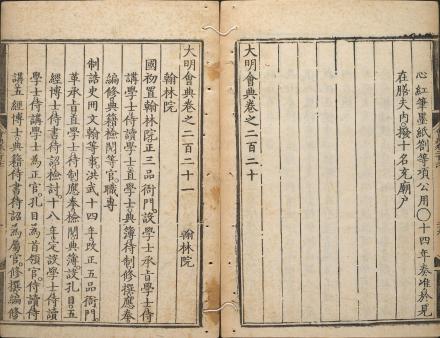 心紅筆墨紙劄等項公用〇十四年奏准於見
在膳夫內撥十名充廟戶
大明會典卷之二百二十
大明會典卷之二百二十一
翰林院
翰林院
國初置翰林院正三品衙門設學士承旨學士侍
講學士侍讀學士直學士典簿待制修撰應奉
編修典籍檢閱等官職專
制誥史冊文翰等事洪武十四年改正五品衙門
革承旨直學士待制應奉檢閱典簿設孔目五
經博士侍書待詔檢討十八年定設學士侍讀
學士侍講學士為正官孔目為首領官侍讀侍
講五經博士典籍侍書待詔為屬官修撰編修